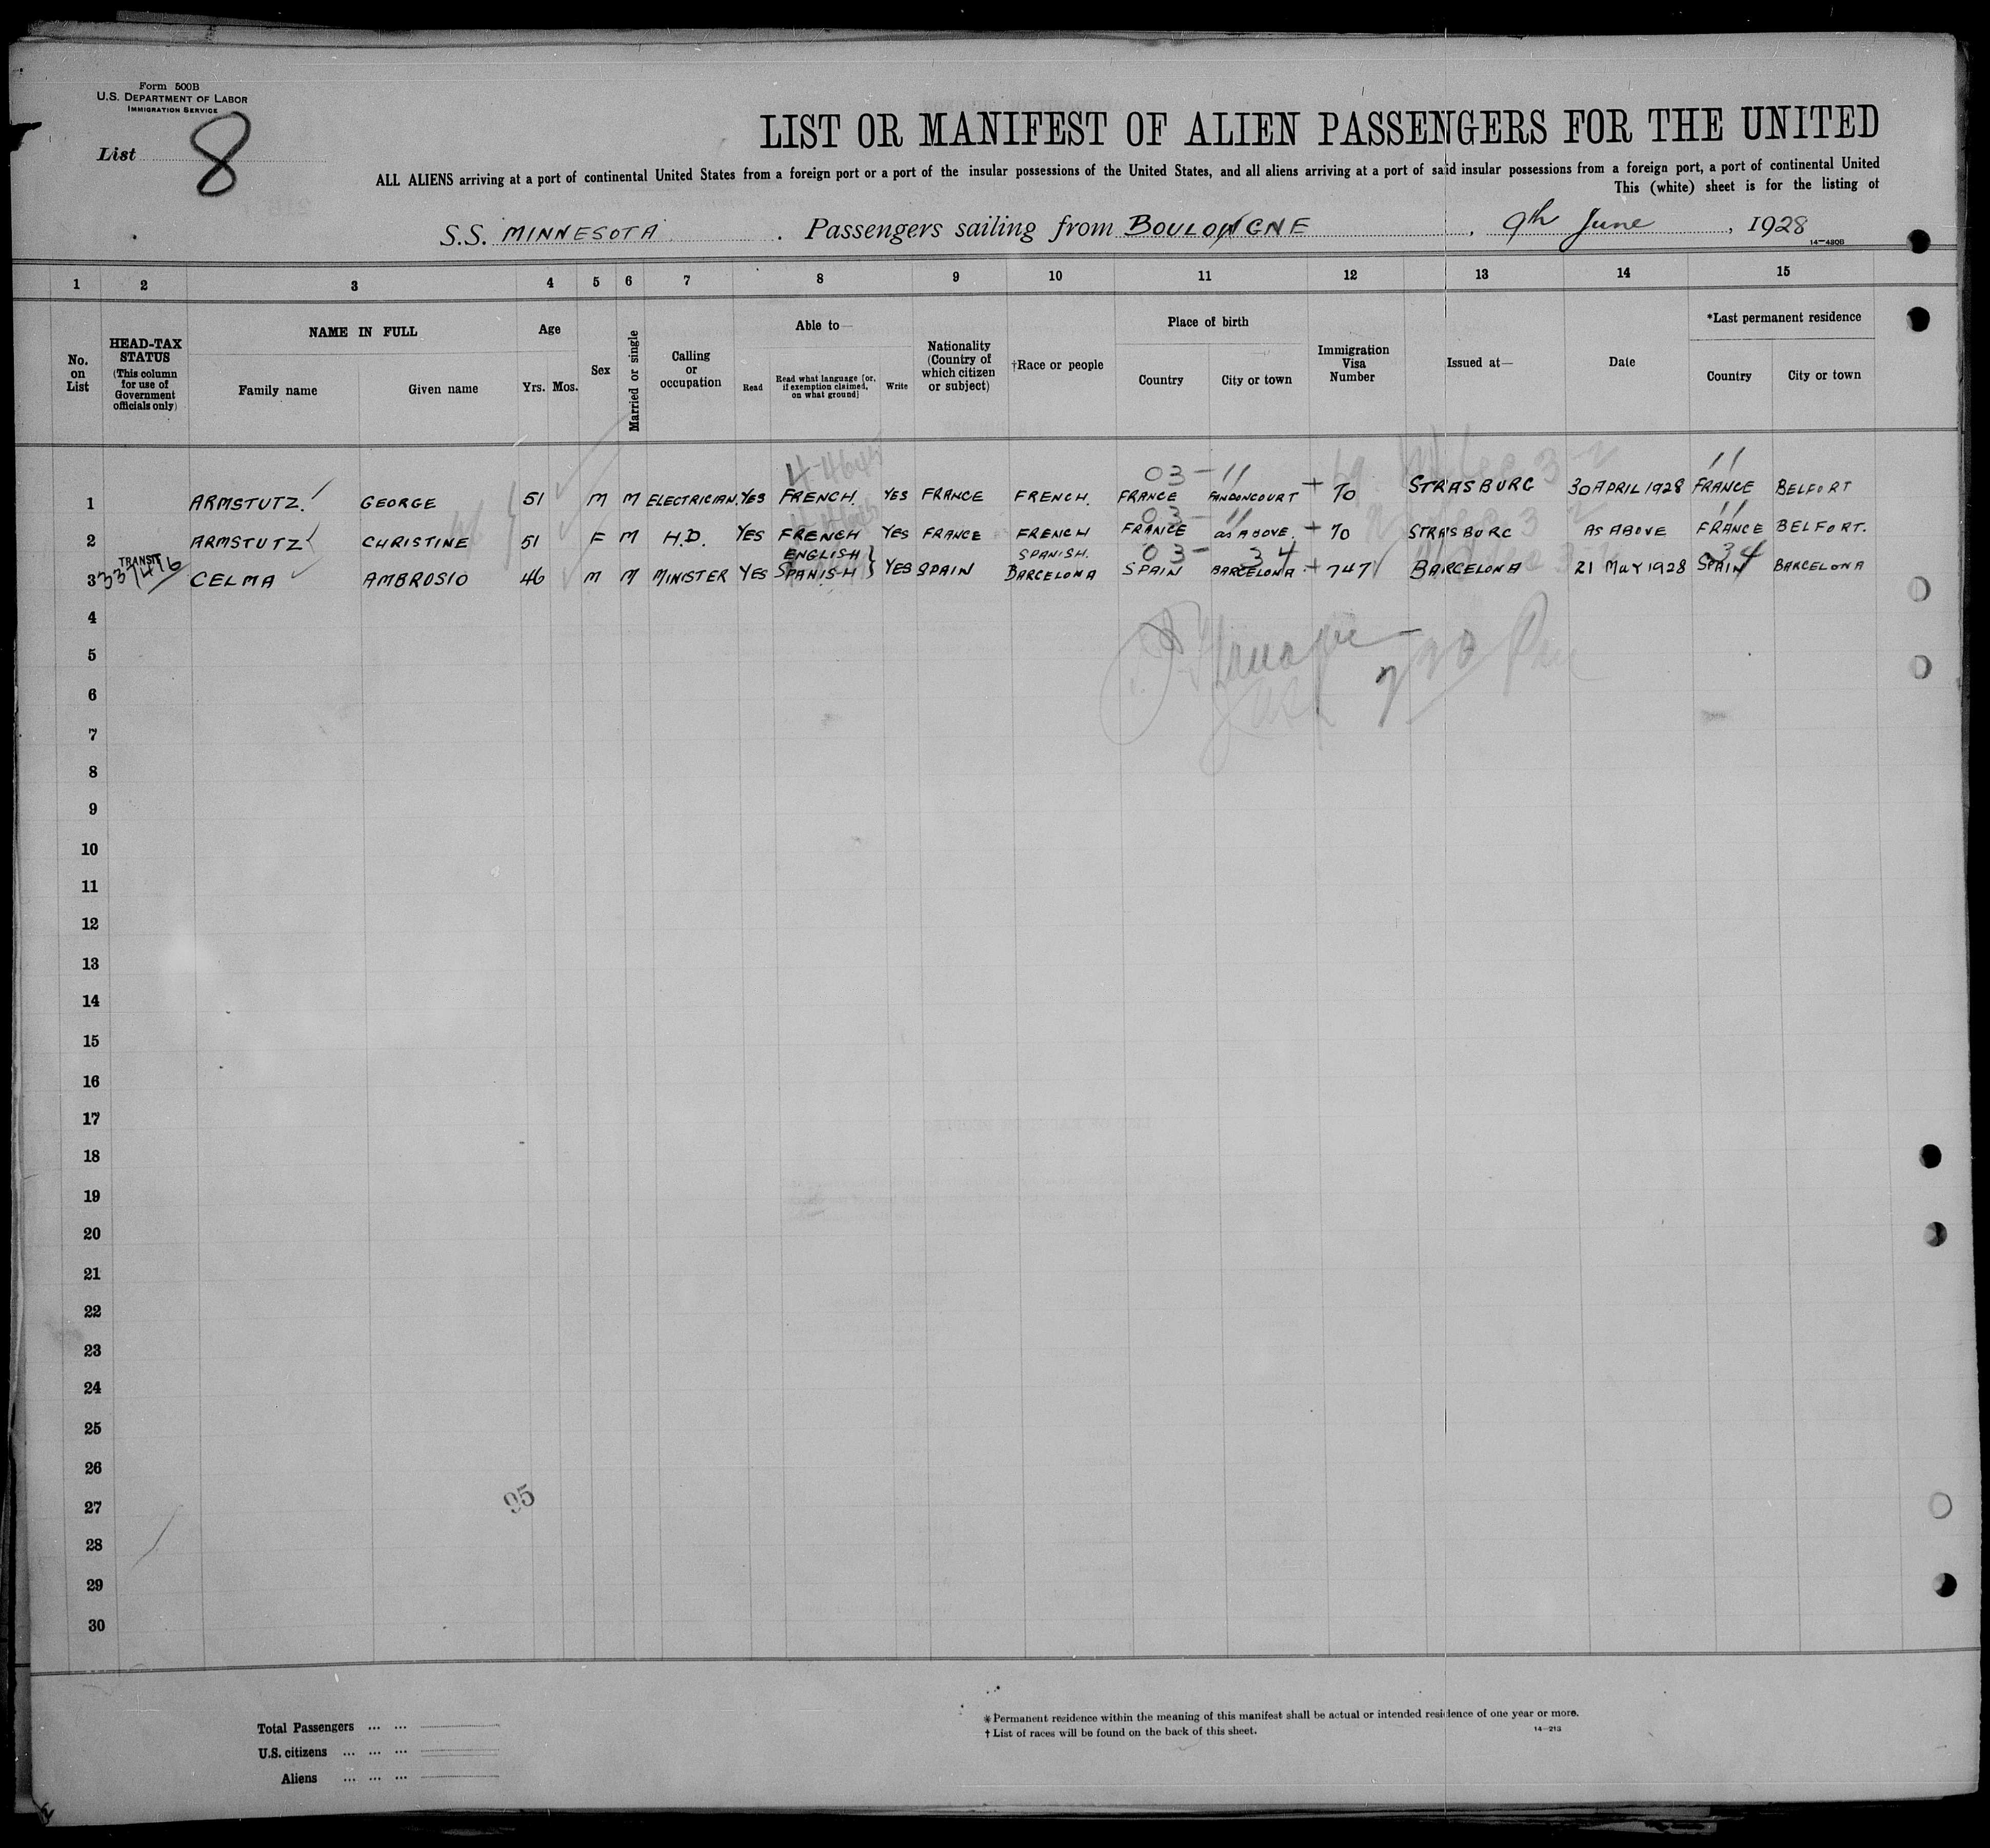 Form 500B
U.S. DEPARTMENT OF LABOR
IMMIGRATION SERVICE
List 8
LIST OR MANIFEST OF ALIEN PASSENGERS FOR THE UNITED
ALL ALIENS arriving at a port of continental United States from a foreign port or a port of the insular possessions of the United States, and all aliens arriving at a port of said insular possessions from a foreign port, a port of continental United
This (white) sheet is for the listing of
S.S. MINNESOTA . Passengers sailing from BOULOGNE , 9th June , 1928
14-480B
1 2 3 4 5 6 7 8 9 10 11 12 13 14 15
No. on List
HEAD-TAX STATUS (This column for use of Government officials only)
NAME IN FULL
Family name Given name
Age
Yrs. Mos.
Sex
Married or single
Calling or occupation
Able to—
Read
Read what language [or, if exemption claimed, on what ground]
Write
Nationality (Country of which citizen or subject)
†Race or people
Place of birth
Country City or town
Immigration Visa Number
Issued at—
Date
*Last permanent residence
Country City or town
4-4645
03-11
11
1 ARMSTUTZ. GEORGE 51 M M ELECTRICIAN. YES FRENCH. YES FRANCE FRENCH. FRANCE FANDONCOURT + 70 STRASBURG 30 APRIL 1928 FRANCE BELFORT
03-11
11
2 ARMSTUTZ CHRISTINE 51 F M H.D. YES FRENCH YES FRANCE FRENCH FRANCE as ABOVE. + 70 STRASBURG AS ABOVE FRANCE BELFORT.
TRANSIT ENGLISH SPANISH. 03-34 34
3 CELMA AMBROSIO 46 M M MINISTER YES SPANISH YES SPAIN BARCELONA SPAIN BARCELONA + 747 BARCELONA 21 MAY 1928 SPAIN BARCELONA
4
5
6
7
8
9
10
11
12
13
14
15
16
17
18
19
20
21
22
23
24
25
26
95
27
28
29
30
Total Passengers ... ...
U.S. citizens ... ... ...
Aliens ... ... ...
* Permanent residence within the meaning of this manifest shall be actual or intended residence of one year or more.
† List of races will be found on the back of this sheet.
14-213